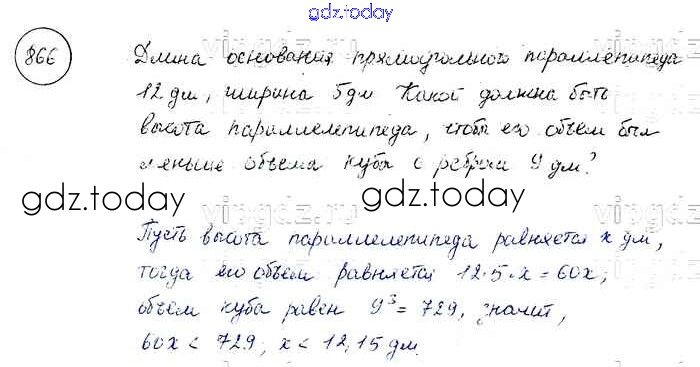 gdz.today
866
Длина основания прямоугольного параллелепипеда
12 дм, ширина 5 дм Какой должна быть
высота параллелепипеда, чтобы его объем был
меньше объема куба с ребром 9 дм?
gdz.today
gdz.today
Пусть высота параллелепипеда равняется x дм,
тогда его объем равняется 12·5·x = 60x,
объем куба равен 9³ = 729, значит,
60x < 729, x < 12,15 дм.